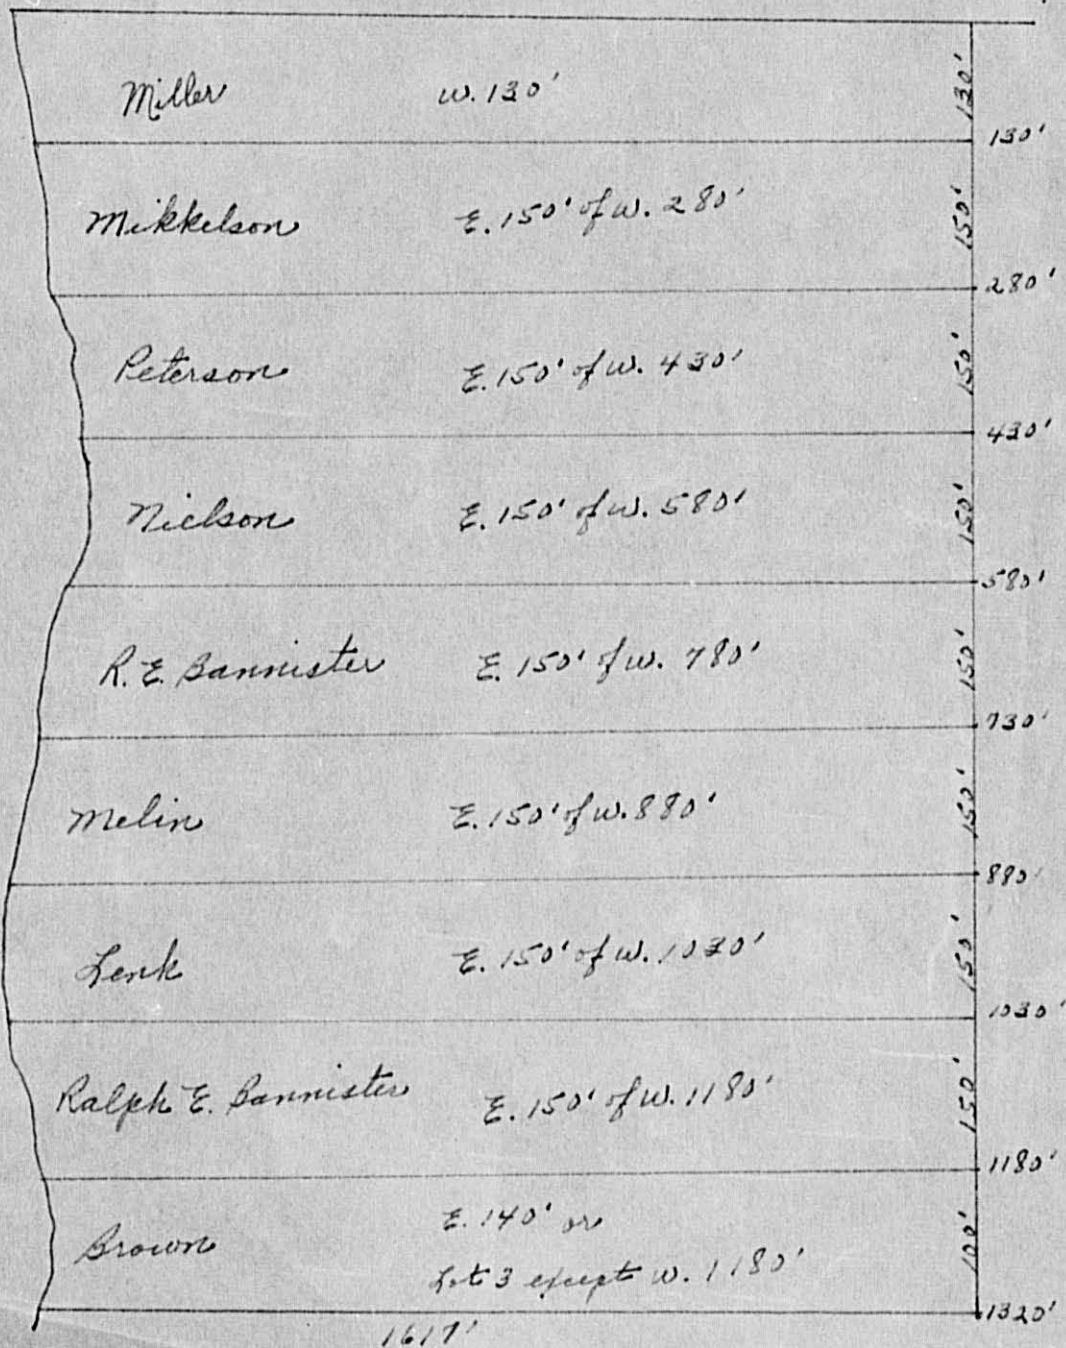 Miller w. 130' 130'
130'
Mikkelson E. 150' of w. 280' 150'
280'
Peterson E. 150' of w. 430' 150'
430'
Nielson E. 150' of w. 580' 150'
580'
R. E. Bannister E. 150' of w. 780' 150'
730'
Melin E. 150' of w. 880' 150'
880'
Lenk E. 150' of w. 1030' 150'
1030'
Ralph E. Bannister E. 150' of w. 1180' 150'
1180'
Brown E. 140' or 100'
Lot 3 except w. 1180'
1320'
1617'